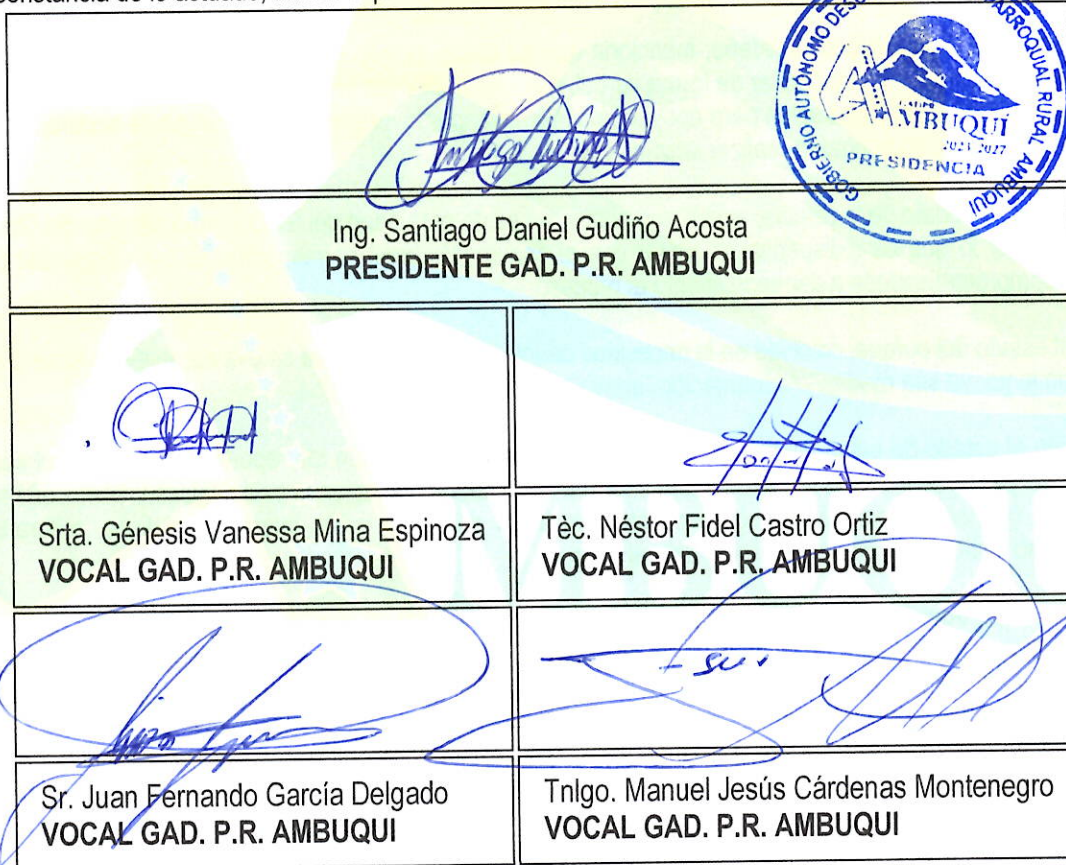 constancia de lo actuado,
GOBIERNO AUTÓNOMO DES
PARROQUIAL RURAL AMBUQUI
AMBUQUÍ
2023-2027
PRESIDENCIA
Ing. Santiago Daniel Gudiño Acosta
PRESIDENTE GAD. P.R. AMBUQUI
Srta. Génesis Vanessa Mina Espinoza
VOCAL GAD. P.R. AMBUQUI
Tèc. Néstor Fidel Castro Ortiz
VOCAL GAD. P.R. AMBUQUI
Sr. Juan Fernando García Delgado
VOCAL GAD. P.R. AMBUQUI
Tnlgo. Manuel Jesús Cárdenas Montenegro
VOCAL GAD. P.R. AMBUQUI